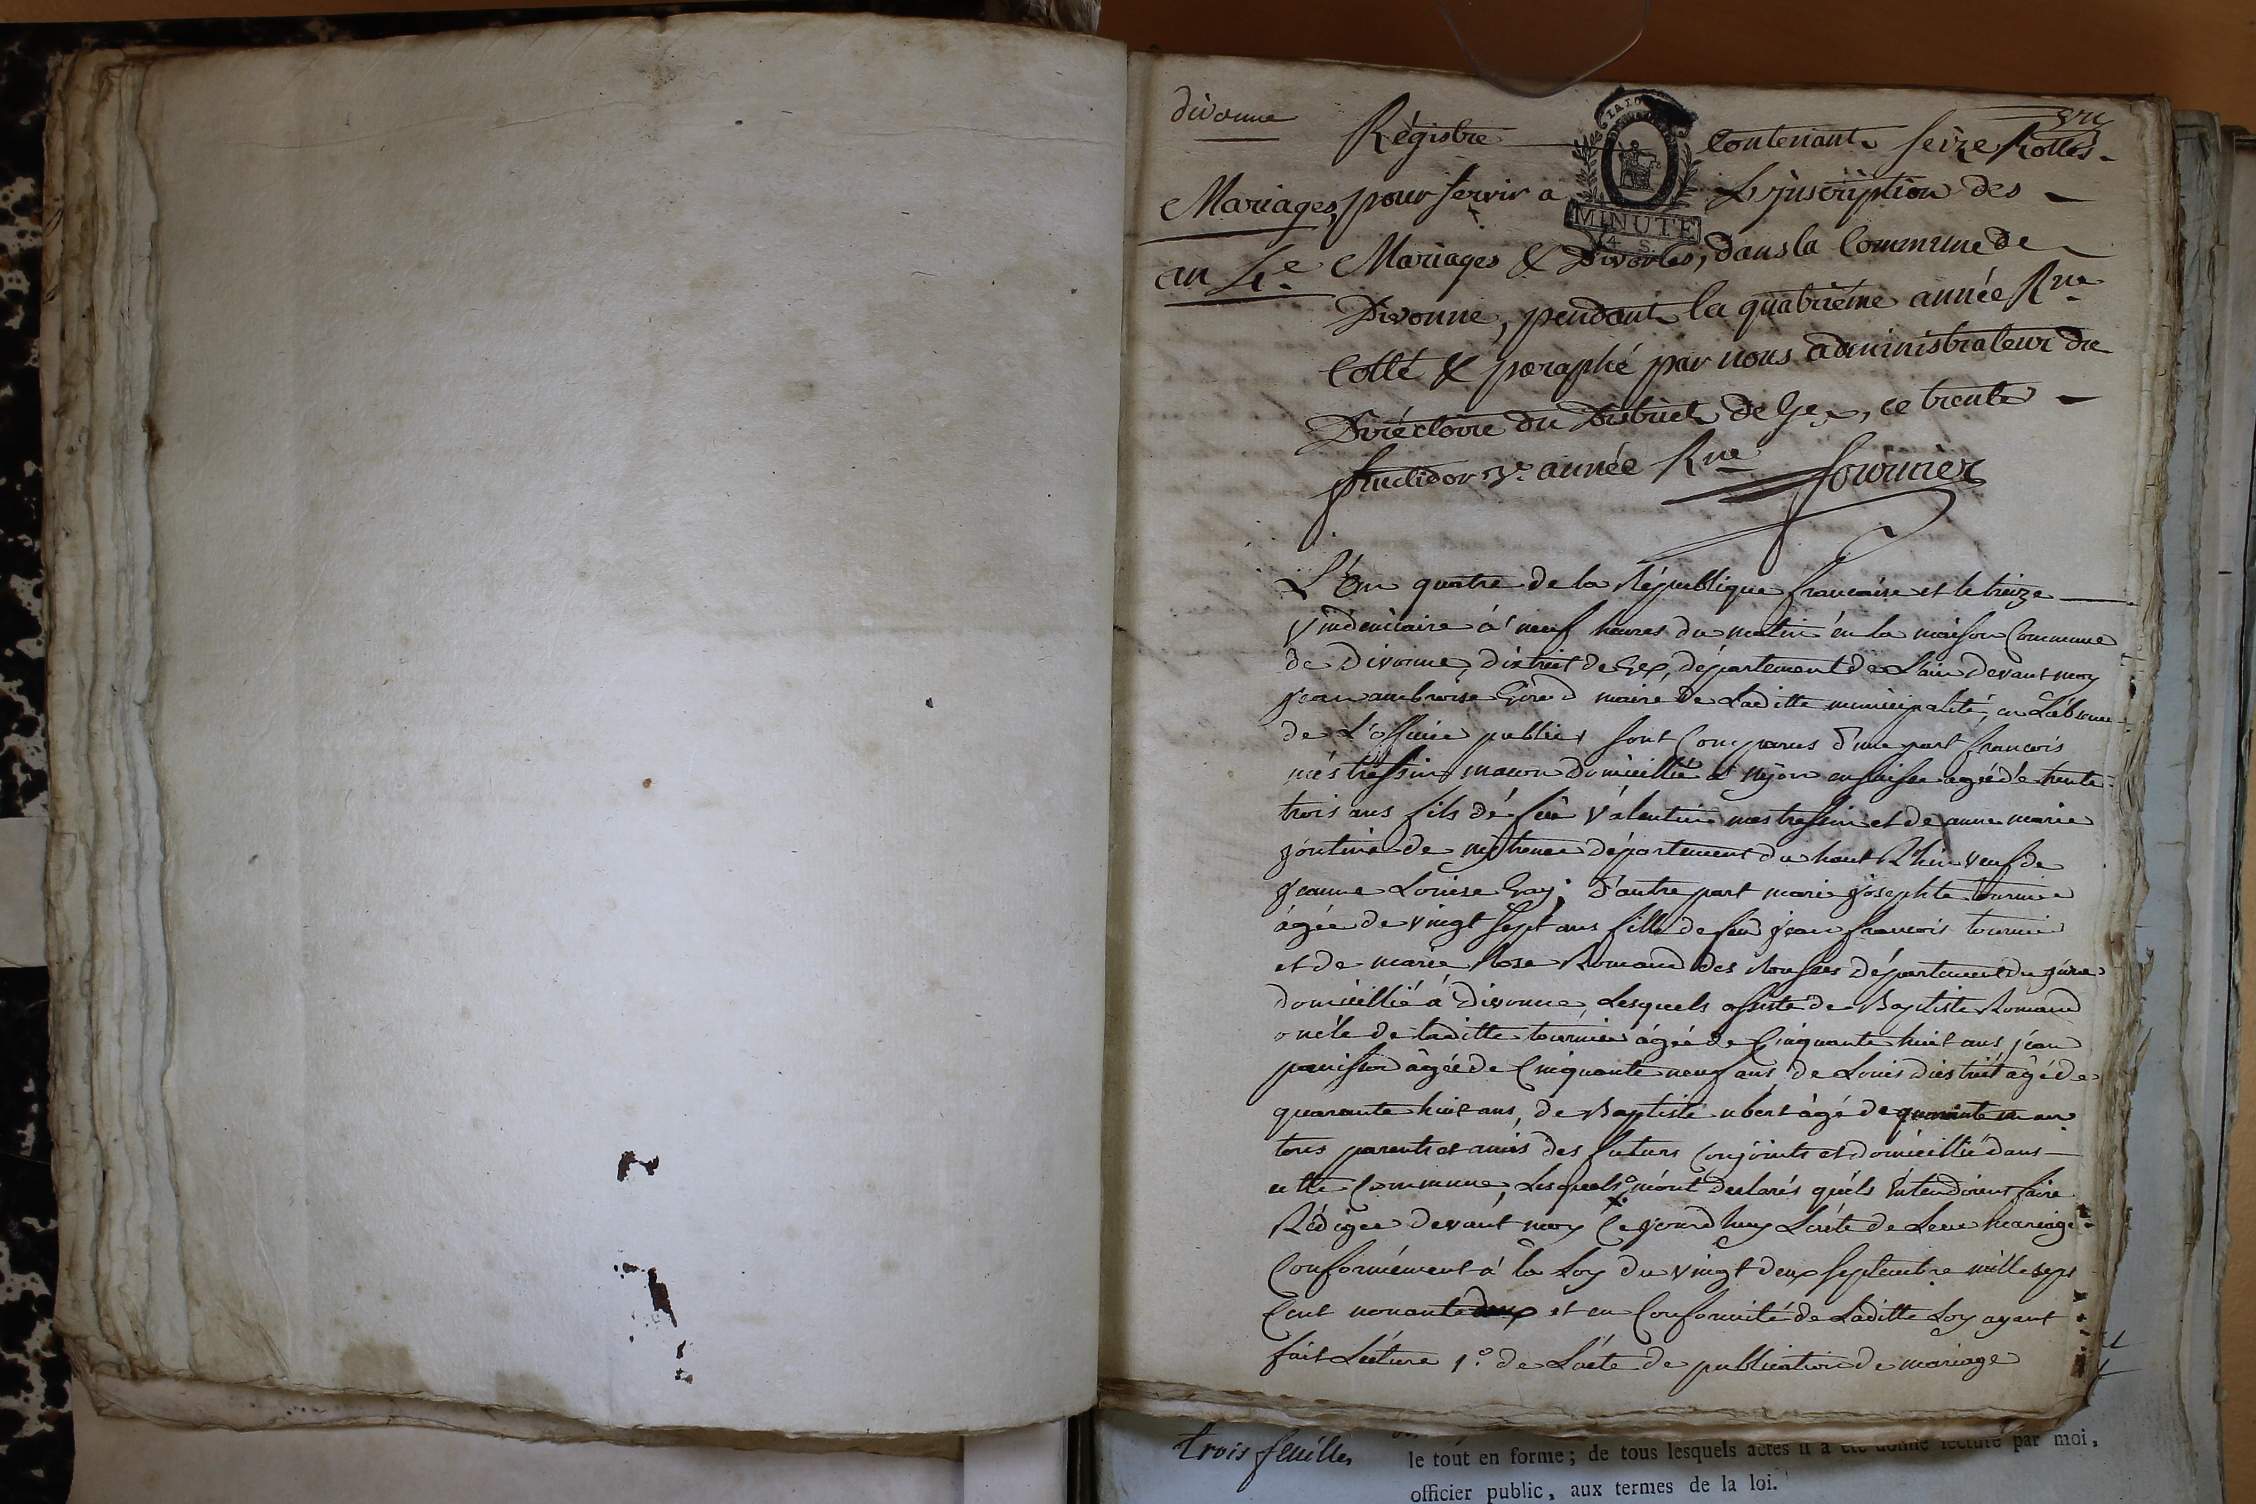 divonne
Mariages
an 4.e
Régistre contenant seize Rolles
pour servir a L'juscription des
MINUTE
4 S.
Mariages & Divorces, dans la Commune de
Divonne, pendant la quatriéme année Rne
Cotté & paraphé par nous administrateur du
Diréctoire du District de Gex, ce trente
fructidor 3.e année Rne fournier
L'An quatre de la République francaise et le treize
Vindemiaire á neuf heures du matin en la maison Commune
de Divonne, district de Gex, département de L'ain devant moy
jean ambroise Girod maire de Laditte municipalité, en L'absence
de L'officier public, sont Comparus d'une part francois
mestressin macon domicillié á Nyon en suisse agé de trente
trois ans fils de feu Valentin mestressin et de anne marie
de département du haut Rhin veuf de
jeanne Louise Gay; d'autre part marie josephte tournie
ágée de vingt sept ans fille de feu jean francois tournie
et de marie Rose Romand des Rousses département du jura
domicillié á divonne, Lesquels assisté de Baptiste Romand
oncle de laditte tournier ágée de Cinquante huit ans jean
panisson ágée de Cinquante neuf ans, de Louis district ágé de
quarante huit ans, de Baptiste ubert ágé de quarante un an
tous parents et amis des futurs Conjoints et domicillié dans
cette Commune, Lesquels m'ont declarés qu'els intendoient faire
Rédiger devant moy Ce jourd huy L'acte de Leur mariage
Conformément á la Loy du vingt deux septembre mille sept
Cent nonante deux et en Conformité de Laditte Loy ayant
fait Lecture 1.o de L'acte de publication de mariage
trois feuilles
le tout en forme; de tous lesquels actes il a été donné lecture par moi,
officier public, aux termes de la loi.